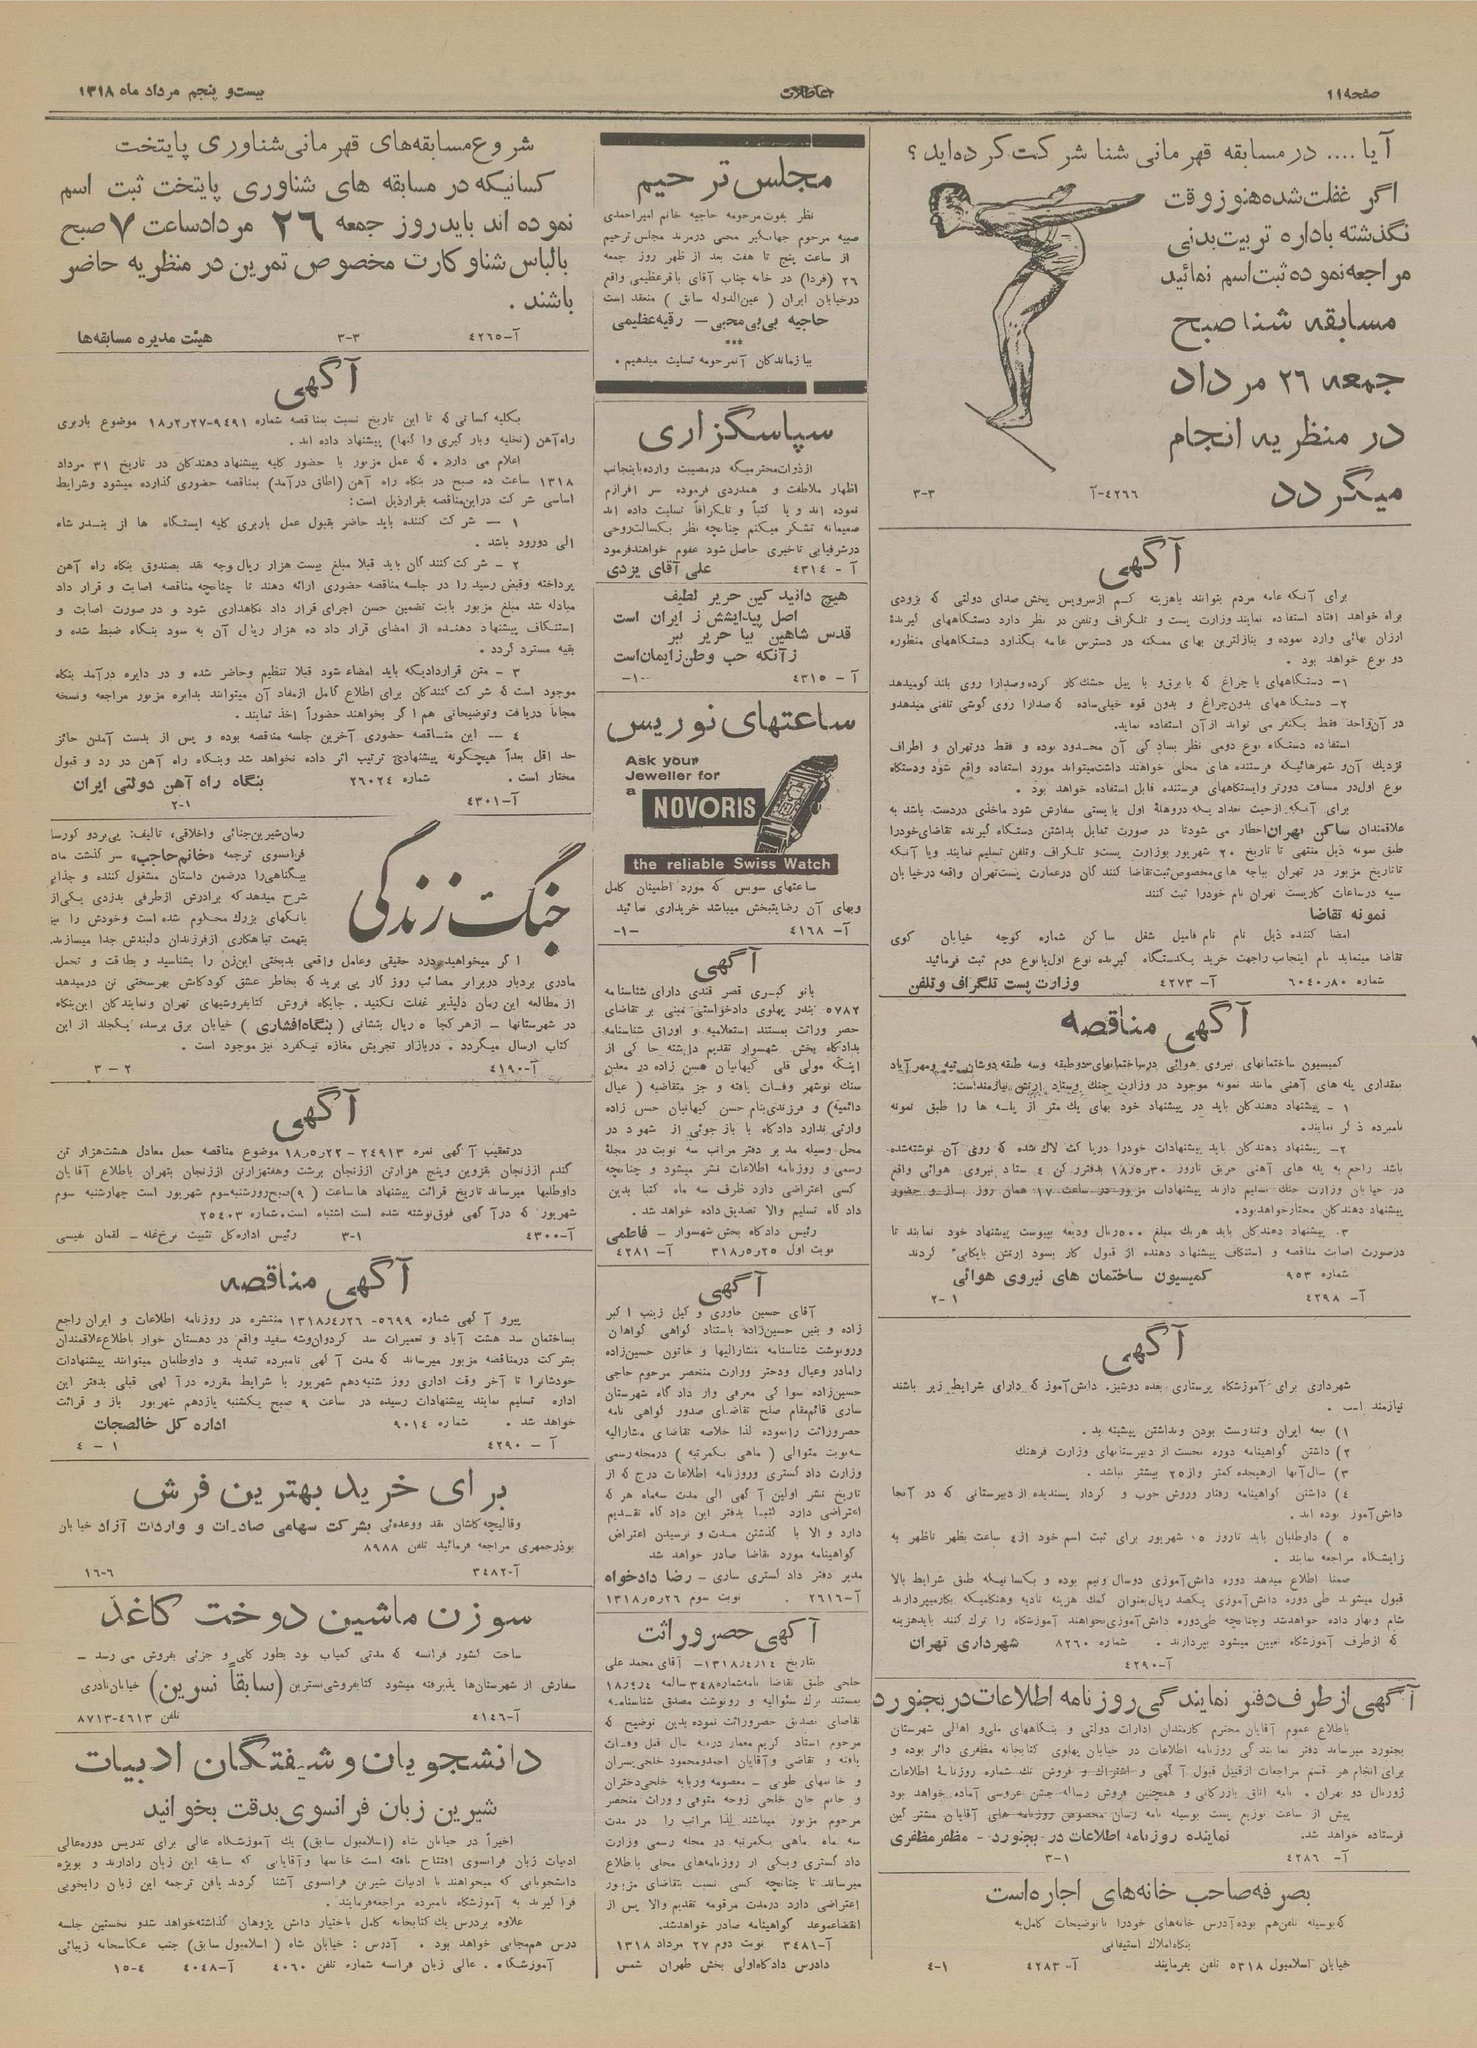 صفحه ۱۱
اطلاعات
بیست و پنجم مرداد ماه ۱۳۱۸
آیا .... در مسابقه قهرمانی شنا شرکت کرده‌اید؟
اگر غفلت شده هنوز وقت
نگذشته باداره تربیت بدنی
مراجعه نموده ثبت اسم نمائید
مسابقه شنا صبح
جمعه ۲۶ مرداد
در منظریه انجام
میگردد
آ-۴۲۶۶ ۳-۳
آگهی
برای آنکه عامه مردم بتوانند باهزینه کم ازسرویس پخش صدای دولتی که بزودی
براه خواهد افتاد استفاده نمایند وزارت پست و تلگراف وتلفن در نظر دارد دستگاههای گیرندهٔ
ارزان بهائی وارد نموده و بنازلترین بهای ممکنه در دسترس عامه بگذارد دستگاههای منظوره
دو نوع خواهد بود .
۱- دستگاههای با چراغ که با برق و با پیل خشک کار کرده وصدارا روی بلند گو میدهد
۲- دستگاههای بدون چراغ و بدون قوه خیلی ساده که صدارا روی گوشی تلفنی میدهد و
در آن واحد فقط یکنفر می تواند از آن استفاده نماید.
استفاده دستگاه نوع دومی نظر بسادگی آن محدود بوده و فقط درتهران و اطراف
نزدیک آن و شهرهائیکه فرستنده های محلی خواهند داشت میتواند مورد استفاده واقع شود ودستگاه
نوع اول در مسافت دورتر وایستگاههای فرستنده قابل استفاده خواهد بود .
برای آنکه ازحیث تعداد یکه دروهلهٔ اول بایستی سفارش شود ماخذی دردست باشد به
علاقمندان ساکن تهران اخطار می شود تا در صورت تمایل بداشتن دستگاه گیرنده تقاضای خودرا
طبق نمونه ذیل منتهی تا تاریخ ۲۰ شهریور بوزارت پست و تلگراف وتلفن تسلیم نمایند ویا آنکه
تاتاریخ مزبور در تهران بباجه های مخصوص ثبت تقاضا کنندگان درعمارت پست تهران واقعه درخیابان
سپه درساعات کار پست تهران نام خودرا ثبت کنند
نمونه تقاضا
امضا کننده ذیل نام نام فامیل شغل ساکن شماره کوچه خیابان کوی
تقاضا مینماید نام اینجانب راجهت خرید یکدستگاه گیرنده نوع اول یا نوع دوم ثبت فرمائید
شماره ۶۰۴۰ر۸۰ آ- ۴۲۷۳ وزارت پست تلگراف وتلفن
آگهی مناقصه
کمیسیون ساختمانهای نیروی هوائی درساختمانهای سه دوطبقه وسه طبقه دوشان تپه ومهرآباد
بمقداری پله های آهنی مانند نمونه موجود در وزارت جنگ وستاد ارتش نیازمند است:
۱ - پیشنهاد دهندگان باید در پیشنهاد خود بهای یک متر از پله ها را طبق نمونه
نامبرده ذکر نمایند.
۲- پیشنهاد دهندگان باید پیشنهادات خودرا درپاکت لاک شده که روی آن نوشته شده
باشد راجع به پله های آهنی حریق تاروز ۳۰ر۵ر۱۸ بدفتر رکن ۴ ستاد نیروی هوائی واقع
در خیابان وزارت جنگ تسلیم دارند پیشنهادات مزبور در ساعت ۱۷ همان روز باز و حضور
پیشنهاد دهندگان مختار خواهد بود.
۳. پیشنهاد دهندگان باید هریک مبلغ ۵۰۰ ریال ودیعه بپیوست پیشنهاد خود نمایند تا
درصورت اصابت مناقصه و استنکاف پیشنهاد دهنده از قبول کار بسود ارتش بایگانی گردند
شماره ۹۵۳ کمیسیون ساختمان های نیروی هوائی
آ- ۴۲۹۸ ۲-۱
آگهی
شهرداری برای آموزشگاه پرستاری بعده دوشیزه دانش آموز که دارای شرایط زیر باشند
نیازمند است .
۱) تبعه ایران وتندرست بودن ونداشتن پیشینه بد .
۲) داشتن گواهینامه دوره نخست از دبیرستانهای وزارت فرهنگ
۳) سال آنها ازهیجده کمتر واز ۲۵ بیشتر نباشد .
۴) داشتن گواهینامه رفتار وروش خوب و کردار پسندیده از دبیرستانی که در آنجا
دانش آموز بوده اند.
۵ ) داوطلبان باید تاروز ۱۵ شهریور برای ثبت اسم خود از ۴ ساعت بظهر تاظهر به
زایشگاه مراجعه نمایند .
ضمنا اطلاع میدهد دوره دانش آموزی دوسال ونیم بوده و بکسانیکه طبق شرایط بالا
قبول میشوند طی دوره دانش آموزی یکصد ریال بعنوان کمک هزینه تادیه وهنگامیکه بکار میپردازند
شام ونهار داده خواهد شد وچنانچه طی دوره دانش آموزی بخواهند آموزشگاه را ترک کنند باید هزینه
که ازطرف آموزشگاه تعیین میشود بپردازند . شماره ۸۲۶۰ شهرداری تهران
آ-۴۲۹۰
آگهی از طرف دفتر نمایندگی روزنامه اطلاعات در بجنورد
باطلاع عموم آقایان محترم کارمندان ادارات دولتی و بنگاههای ملی و اهالی شهرستان
بجنورد میرساند دفتر نمایندگی روزنامه اطلاعات در خیابان پهلوی کتابخانه مظفری دائر بوده و
برای انجام هر قسم مراجعات ازقبیل قبول آگهی و اشتراک و فروش تک شماره روزنامهٔ اطلاعات
ژورنال دو تهران . نامه اتاق بازرگانی و همچنین فروش رساله جشن عروسی آماده خواهد بود
پیش از ساعت توزیع پست بوسیله نامه رسان مخصوص روزنامه های آقایان مشترکین
فرستاده خواهد شد. نماینده روزنامه اطلاعات در بجنورد - مظفر مظفری
آ- ۴۲۸۶ ۳-۱
بصرفه صاحب خانه‌های اجاره است
که بوسیله تلفن هم بوده آدرس خانه‌های خودرا با توضیحات کامل به
بنگاه املاک استیفانی
خیابان اسلامبول ۵۳۱۸ تلفن بفرمایند آ- ۴۲۸۳ ۴-۱
مجلس ترحیم
نظر بفوت مرحومه حاجیه خانم امیراحمدی
صبیه مرحوم جهانگیر محبی درمرند مجلس ترحیم
از ساعت پنج تا هفت بعد از ظهر روز جمعه
۲۶ (فردا) در خانه جناب آقای باقر عظیمی واقع
درخیابان ایران ( عین‌الدوله سابق ) منعقد است
حاجیه بی‌بی محبی - رقیه عظیمی
***
ببازماندگان آنمرحومه تسلیت میدهیم .
سپاسگزاری
ازذوات محترمیکه درمصیبت وارده باینجانب
اظهار ملاطفت و همدردی فرموده سر افرازم
نموده اند و یا کتباً و تلگرافاً تسلیت داده اند
صمیمانه تشکر میکنم چنانچه نظر بکسالت روحی
درشرفیابی تاخیری حاصل شود عفوم خواهند فرمود
آ - ۴۳۱۴ علی آقای یزدی
هیچ دانید کین حریر لطیف
اصل پیدایشش ز ایران است
قدس شاهین بیا حریر ببر
زآنکه حب وطن زایمان است
آ - ۴۳۱۵ -۱-
ساعتهای نوریس
Ask your
Jeweller for
a NOVORIS
the reliable Swiss Watch
ساعتهای سویس که مورد اطمینان کامل
وبهای آن رضایتبخش میباشد خریداری نمائید
آ- ۴۱۶۸ -۱-
آگهی
بانو کبری قصر قندی دارای شناسنامه
۵۷۸۲ بندر پهلوی دادخواستی مبنی بر تقاضای
حصر وراثت بمستند استعلامیه و اوراق شناسنامه
بدادگاه بخش شهسوار تقدیم داشته حاکی از
اینکه مولی قلی کیهانیان حسن زاده در معدن
سنک نوشهر وفات یافته و جز متقاضیه ( عیال
دائمیه) و فرزندی بنام حسن کیهانیان حسن زاده
وارثی ندارد دادگاه با بازجوئی از شهود در
محل وسیله مدیر دفتر مراتب سه نوبت در مجلهٔ
رسمی و روزنامه اطلاعات نشر میشود و چنانچه
کسی اعتراضی دارد ظرف سه ماه کتبا بدین
دادگاه تسلیم والا تصدیق داده خواهد شد.
رئیس دادگاه بخش شهسوار - فاطمی
نوبت اول ۲۵ر۵ر۳۱۸ آ- ۴۲۸۱
آگهی
آقای حسین خاوری و کیل زینب اکبر
زاده و بنین حسین‌زاده باستناد گواهی گواهان
ورونوشت شناسنامه مشارالیها و خاتون حسین‌زاده
رامادر وعیال ودختر ووارث منحصر مرحوم حاجی
حسین‌زاده سوا کی معرفی واز دادگاه شهرستان
ساری قائم‌مقام صلح تقاضای صدور گواهی نامه
حصروراثت رانموده لذا خلاصه تقاضای مشارالیه
سه‌نوبت متوالی ( ماهی یکمرتبه ) درمجله رسمی
وزارت دادگستری وروزنامه اطلاعات درج که از
تاریخ نشر اولین آگهی الی مدت سه‌ماه هر که
اعتراضی دارد کتبا بدفتر این دادگاه تقدیم
دارد و الا با گذشتن مدت و نرسیدن اعتراض
گواهینامه مورد تقاضا صادر خواهد شد
مدیر دفتر دادگستری ساری - رضا دادخواه
آ-۲۶۱۶ . نوبت سوم ۲۶ر۵ر۱۳۱۸
آگهی حصر وراثت
بتاریخ ۱۴ر۴ر۱۳۱۸- آقای محمد علی
خلجی طبق تقاضا نامه شماره ۳۴۸ سالمه ۱۴ر۴ر۱۸
بمستند برک سئوالیه و رونوشت مصدق شناسنامه
تقاضای تصدیق حصروراثت نموده بدین توضیح که
مرحوم استاد کریم معمار درسه سال قبل وفات
یافته و تقاضی وآقایان احمدومحمود خلجی پسران
و خانمهای طوبی - معصومه وربابه خلجی دختران
و خانم جان خلجی زوجه متوفی و وراث منحصر
مرحوم مزبور میباشند لذا مراتب را در مدت
سه ماه ماهی یکمرتبه در مجله رسمی وزارت
دادگستری ویکی از روزنامه‌های محلی باطلاع
میرساند تا چنانچه کسی نسبت بتقاضای مزبور
اعتراضی دارد درمدت مرقومه تقدیم والا پس از
انقضا موعد گواهینامه صادر خواهد شد.
آ-۳۴۸۱ نوبت دوم ۲۷ مرداد ۱۳۱۸
دادرس دادگاه اولی بخش طهران شمس
شروع مسابقه‌های قهرمانی شناوری پایتخت
کسانیکه در مسابقه های شناوری پایتخت ثبت اسم
نموده اند باید روز جمعه ۲۶ مرداد ساعت ۷ صبح
بالباس شنا و کارت مخصوص تمرین در منظریه حاضر
باشند .
آ-۴۲۶۵ ۳-۳ هیئت مدیره مسابقه‌ها
آگهی
بکلیه کسانی که تا این تاریخ نسبت بمناقصه شماره ۹۴۹۱-۲۷ر۲ر۱۸ موضوع باربری
راه‌آهن (تخلیه وبارگیری واگنها) پیشنهاد داده اند.
اعلام می دارد. که عمل مزبور با حضور کلیه پیشنهاد دهندگان در تاریخ ۳۱ مرداد
۱۳۱۸ ساعت ده صبح در بنگاه راه آهن (اطاق درآمد) بمناقصه حضوری گذارده میشود وشرایط
اساسی شرکت دراین مناقصه بقرار ذیل است :
۱ — شرکت کننده باید حاضر بقبول عمل باربری کلیه ایستگاه ها از بندر شاه
الی دورود باشد .
۲ - شرکت کنندگان باید قبلا مبلغ بیست هزار ریال وجه نقد بصندوق بنگاه راه آهن
پرداخته وقبض رسید را در جلسه مناقصه حضوری ارائه دهند تا چنانچه مناقصه اصابت و قرار داد
مبادله شد مبلغ مزبور بابت تضمین حسن اجرای قرار داد نگاهداری شود و در صورت اصابت و
استنکاف پیشنهاد دهنده از امضای قرار داد ده هزار ریال آن به سود بنگاه ضبط شده و
بقیه مسترد گردد .
۳ - متن قراردادیکه باید امضاء شود قبلا تنظیم وحاضر شده و در دایره درآمد بنگاه
موجود است که شرکت کنندگان برای اطلاع کامل ازمفاد آن میتوانند بدایره مزبور مراجعه ونسخه
مجانا دریافت وتوضیحاتی هم اگر بخواهند حضوراً اخذ نمایند .
۴ — این مناقصه حضوری آخرین جلسه مناقصه بوده و پس از بدست آمدن حائز
حد اقل بعداً هیچگونه پیشنهادی ترتیب اثر داده نخواهد شد وبنگاه راه آهن در رد و قبول
مختار است . شماره ۲۶۰۲۴ بنگاه راه آهن دولتی ایران
آ-۴۳۰۱ ۲-۱
جنگ زندگی
رمان شیرین جنائی واخلاقی، تالیف: پی‌یر دو کورسا
فرانسوی ترجمه «خانم حاجب» سرگذشت مادر
بیگناهی را درضمن داستان مشغول کننده و جذاب
شرح میدهد که برادرش ازطرفی بدزدی یکی از
بانکهای بزرگ محکوم شده است وخودش را نیز
بتهمت تباهکاری ازفرزندان دلبندش جدا میسازند.
اگر میخواهید دزد حقیقی وعامل واقعی بدبختی این زن را بشناسید و بطاقت و تحمل
مادری بردبار دربرابر مصائب روزگار پی برید که بخاطر عشق کودکانش بهرسختی تن درمیدهد
از مطالعه این رمان دلپذیر غفلت نکنید. جایگاه فروش کتابفروشیهای تهران ونمایندگان این بنگاه
در شهرستانها - ازهر کجا ۵ ریال بنشانی ( بنگاه افشاری ) خیابان برق برسد، یکجلد از این
کتاب ارسال میگردد . دربازار تجریش مغازه نیکفرد نیز موجود است .
آ-۴۱۹۰ ۳ - ۲
آگهی
درتعقیب آگهی نمره ۲۴۹۱۳ - ۲۲ر۵ر۱۸ موضوع مناقصه حمل معادل هشت هزار تن
گندم اززنجان بقزوین وپنج هزارتن اززنجان برشت وهفتهزارتن اززنجان بتهران باطلاع آقایان
داوطلبها میرساند تاریخ قرائت پیشنهادها ساعت (۹) صبح روز شنبه سوم شهریور است چهارشنبه سوم
شهریور که درآگهی فوق نوشته شده است اشتباه است. شماره ۲۵۴۰۳
آ-۴۳۰۰ ۳-۱ رئیس اداره کل تثبیت نرخ غله - لقمان نفیسی
آگهی مناقصه
پیرو آگهی شماره ۵۶۹۹- ۲۶ر۴ر۱۳۱۸ منتشره در روزنامه اطلاعات و ایران راجع
بساختمان سد هشت آباد و تعمیرات سد کردوان وشه سفید واقع در دهستان خوار باطلاع علاقمندان
بشرکت درمناقصه مزبور میرساند که مدت آگهی نامبرده تمدید و داوطلبان میتوانند پیشنهادات
خودشانرا تا آخر وقت اداری روز شنبه دهم شهریور با شرایط مقرره درآگهی قبلی بدفتر این
اداره تسلیم نمایند پیشنهادات رسیده در ساعت ۹ صبح یکشنبه یازدهم شهریور باز و قرائت
خواهد شد . شماره ۹۰۱۴ اداره کل خالصجات
آ - ۴۲۹۰ ۴ - ۱
برای خرید بهترین فرش
وقالیچه کاشان نقد ووعده‌ئی بشرکت سهامی صادرات و واردات آزاد خیابان
بوذرجمهری مراجعه فرمائید تلفن ۸۹۸۸
آ-۳۴۸۲ ۱۶-۶
سوزن ماشین دوخت کاغذ
ساخت کشور فرانسه که مدتی کمیاب بود بطور کلی و جزئی بفروش می رسد -
سفارش از شهرستان‌ها پذیرفته میشود کتابفروشی نسترین (سابقاً نسرین) خیابان نادری
آ-۴۱۴۶ تلفن ۴۶۱۳-۸۷۱۳
دانشجویان و شیفتگان ادبیات
شیرین زبان فرانسوی بدقت بخوانید
اخیراً در خیابان شاه (اسلامبول سابق) یک آموزشگاه عالی برای تدریس دوره عالی
ادبیات زبان فرانسوی افتتاح یافته است خانمها وآقایانی که سابقه این زبان رادارند و بویژه
دانشجویانی که میخواهند با ادبیات شیرین فرانسوی آشنا گردند یافن ترجمه این زبان رابخوبی
فرا گیرند به آموزشگاه نامبرده مراجعه فرمایند.
علاوه بردرس یک کتابخانه کامل باختیار دانش پژوهان گذاشته خواهد شد و نخستین جلسه
درس هم مجانی خواهد بود . آدرس : خیابان شاه ( اسلامبول سابق) جنب عکاسخانه زیبائی
آموزشگاه . عالی زبان فرانسه شماره تلفن ۴۰۶۰ آ-۴۰۴۸ ۱۵-۴